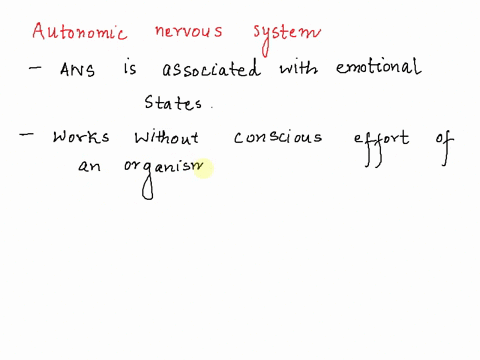 Autonomic nervous system
- ANS is associated with emotional
states.
- Works without conscious effort of
an organism